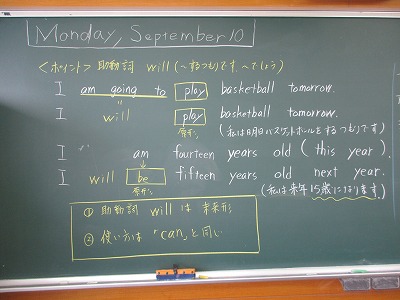 Monday, September 10
<ポイント> 助動詞 will (~するつもりです, ~でしょう)
I am going to play basketball tomorrow.
I will play basketball tomorrow.
原形 (私は明日バスケットボールをするつもりです)
I am fourteen years old (this year).
I will be fifteen years old next year.
原形 (私は来年15歳になります)
① 助動詞 will は 未来形
② 使い方は 「can」と同じ